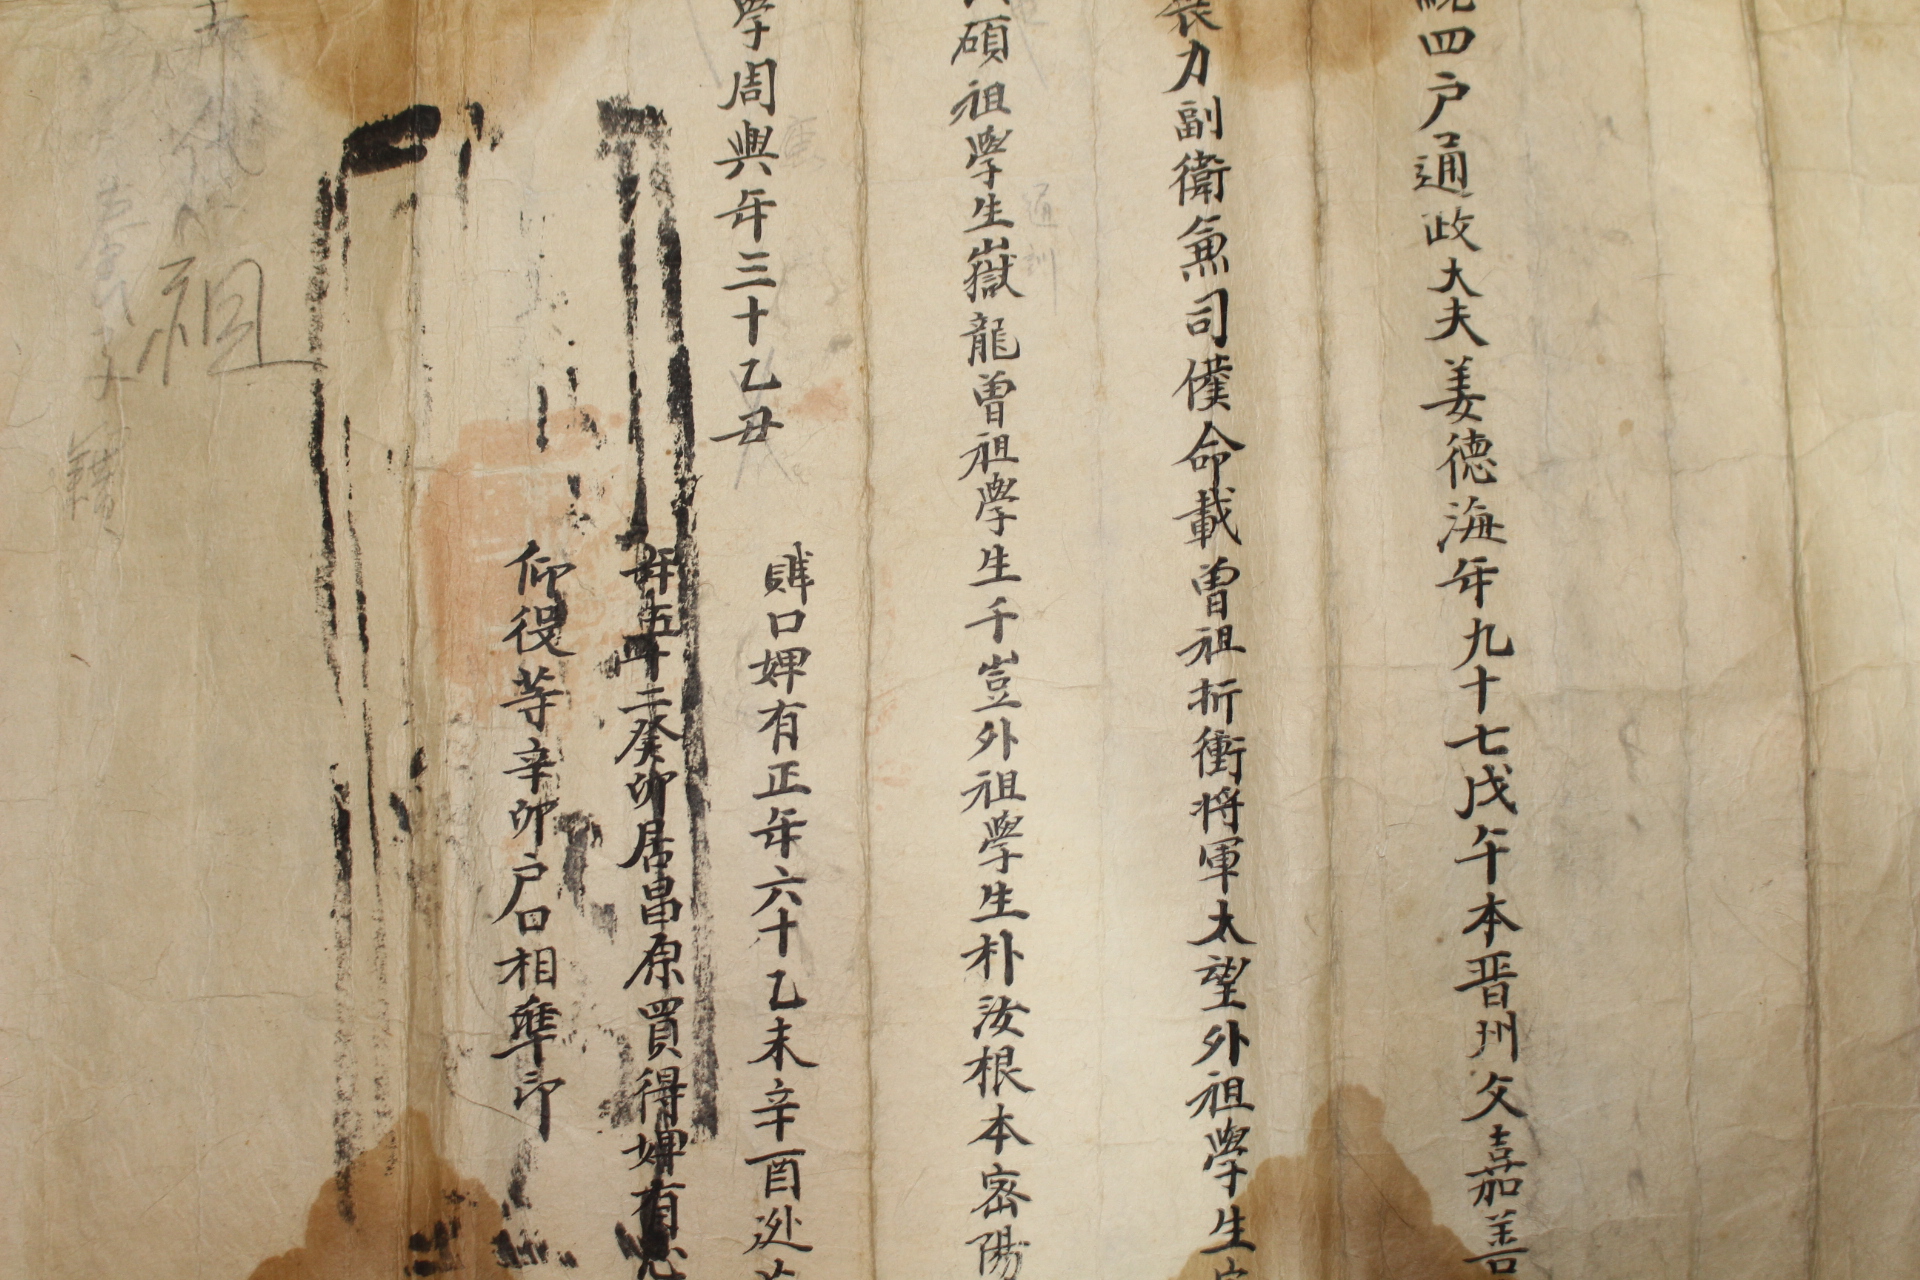 統四戶通政大夫姜德海年九十七戊午本晋州父嘉善
力副衛兼司僕命載曾祖折衝將軍太望外祖學生
碩祖學生嶽龍曾祖學生千豈外祖學生朴汝根本密陽
學周興年三十乙丑
賍口婢有正年六十乙未辛酉逃
五十二癸卯居昌原買得婢有
仰役等辛卯戶口相凖印
祖